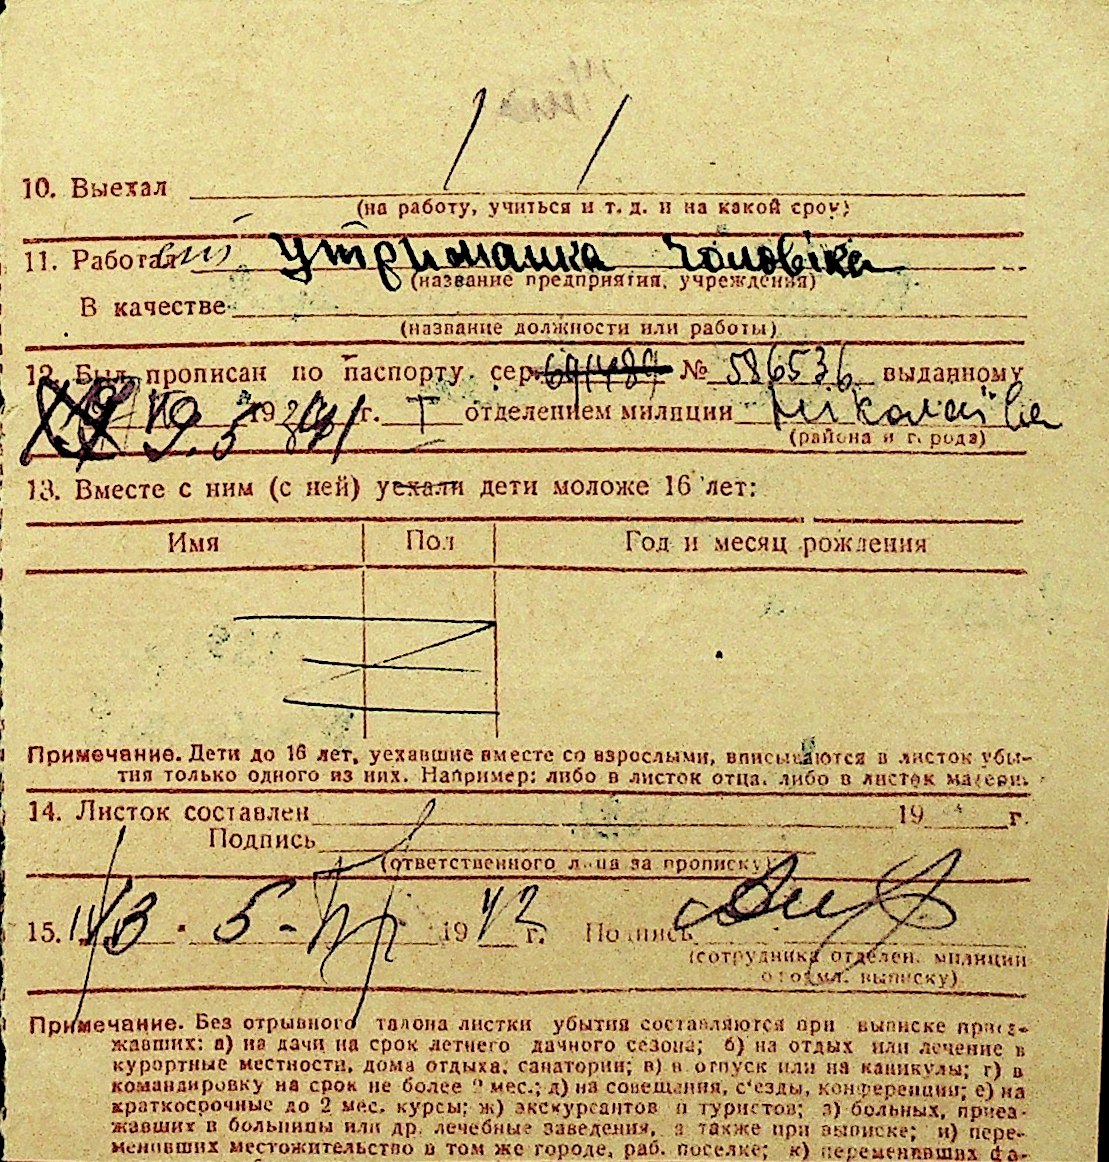 10. Выехал
(на работу, учиться и т. д. и на какой срок)
11. Работал утриманка чоловіка
(название предприятия, учреждения)
В качестве
(название должности или работы)
12. Был прописан по паспорту сер. № 586536 выданному
19 г. I отделением милиции Ніколаїва
(района и города)
13. Вместе с ним (с ней) уехали дети моложе 16 лет:
Имя Пол Год и месяц рождения
Примечание. Дети до 16 лет, уехавшие вместе со взрослыми, вписываются в листок убы-
тия только одного из них. Например: либо в листок отца, либо в листок матери.
14. Листок составлен 19 г.
Подпись
(ответственного лица за прописку)
15. 5- 1942 г. Подпись
(сотрудника отделен. милиции
оформл. выписку)
Примечание. Без отрывного талона листки убытия составляются при выписке приез-
жавших: а) на дачи на срок летнего дачного сезона; б) на отдых или лечение в
курортные местности, дома отдыха, санатории; в) в отпуск или на каникулы; г) в
командировку на срок не более 2 мес.; д) на совещания, с'езды, конференции; е) на
краткосрочные до 2 мес. курсы; ж) экскурсантов и туристов; з) больных, приез-
жавших в больницы или др. лечебные заведения, а также при выписке; и) пере-
менивших местожительство в том же городе, раб. поселке; к) переменивших фа-